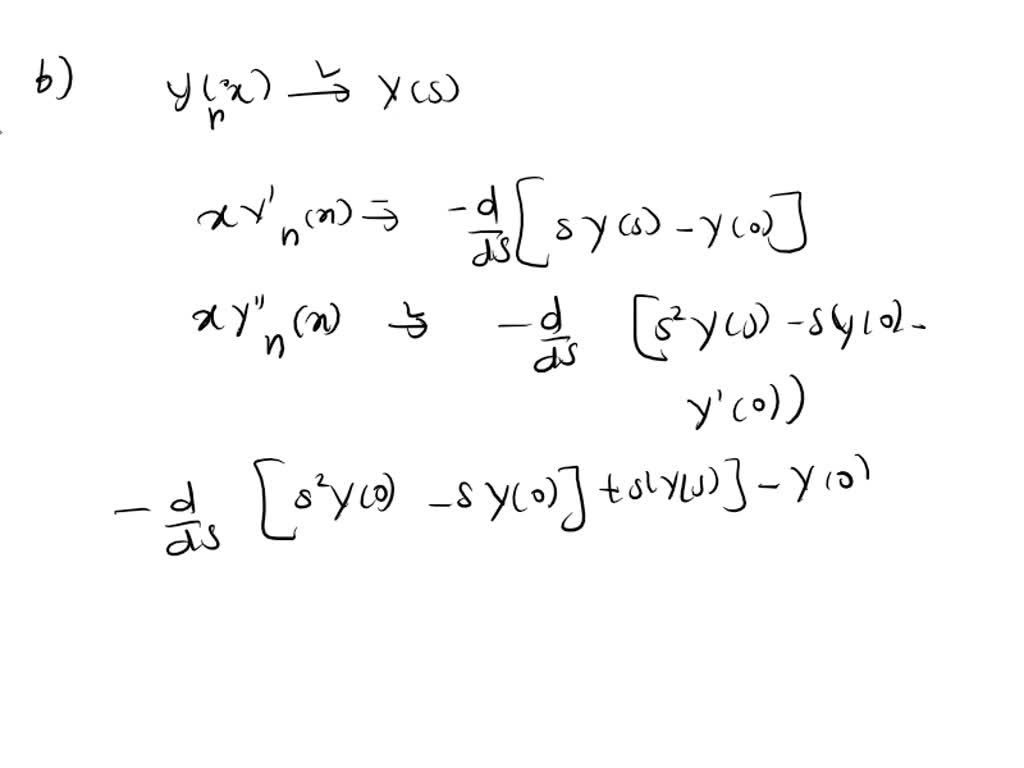 b) y_n(x) \xrightarrow{L} Y(s)
x Y'_n(x) ⇒ -d/ds [s Y(s) - Y(0)]
x Y''_n(x) → -d/ds [s²Y(s) - s(y(0) -
y'(0))
-d/ds [s²Y(0) - s Y(0)] + s(Y(s)] - Y(0)